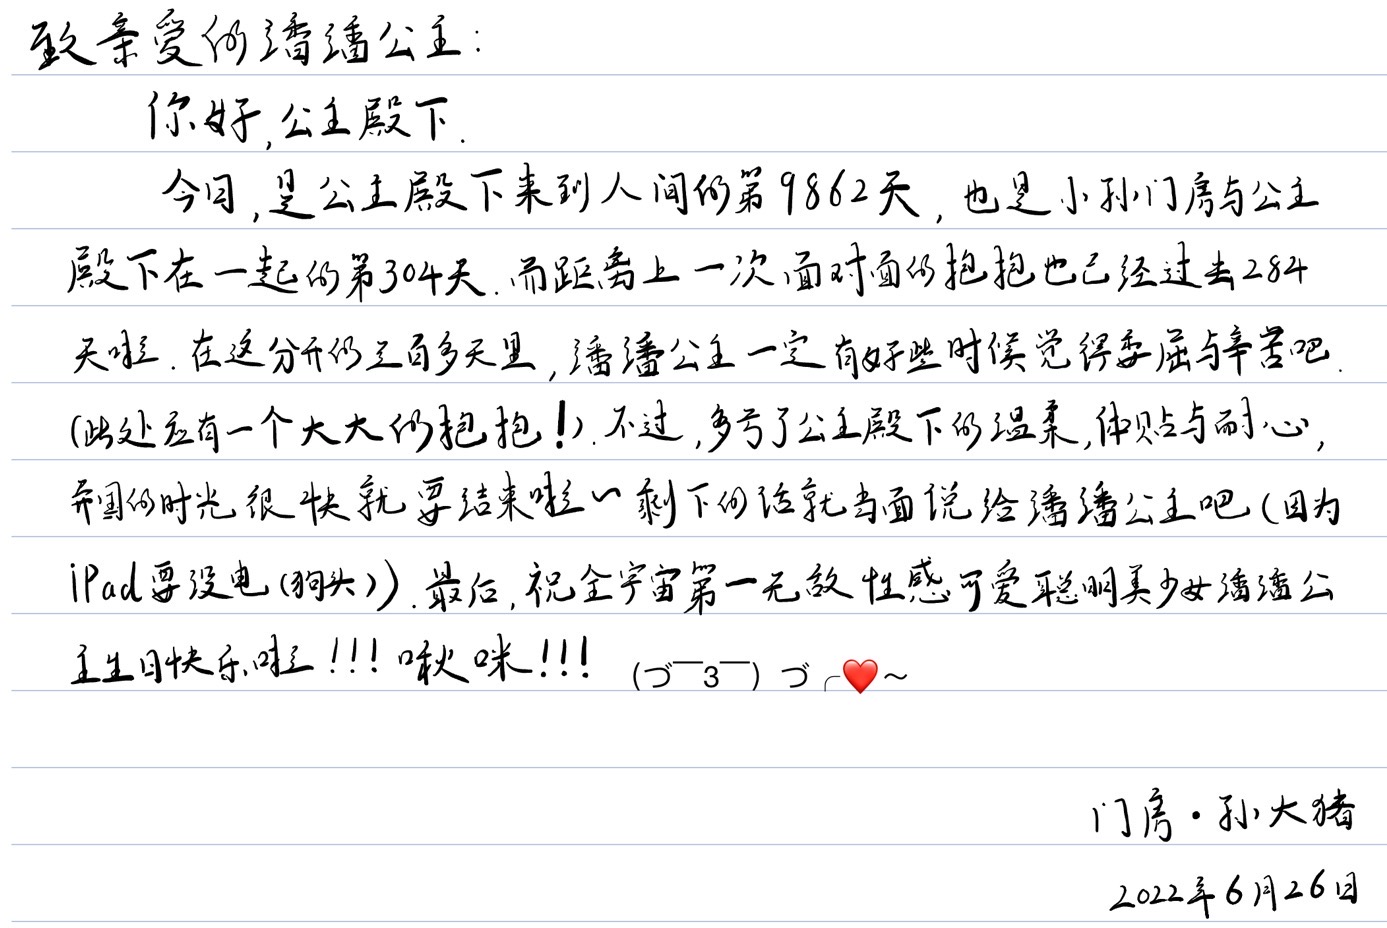 致亲爱的潘潘公主：
你好,公主殿下.
今日,是公主殿下来到人间的第9862天,也是小孙门房与公主
殿下在一起的第304天.而距离上一次面对面的抱抱也已经过去284
天啦.在这分开的三百多天里,潘潘公主一定有好些时候觉得委屈与辛苦吧.
(此处应有一个大大的抱抱!).不过,多亏了公主殿下的温柔,体贴与耐心,
异国的时光很快就要结束啦~剩下的话就当面说给潘潘公主吧(因为
iPad要没电(狗头)).最后,祝全宇宙第一无敌性感可爱聪明美少女潘潘公
主生日快乐啦!!!啾咪!!! (づ￣3￣)づ╭❤️～
门房·孙大猪
2022年6月26日